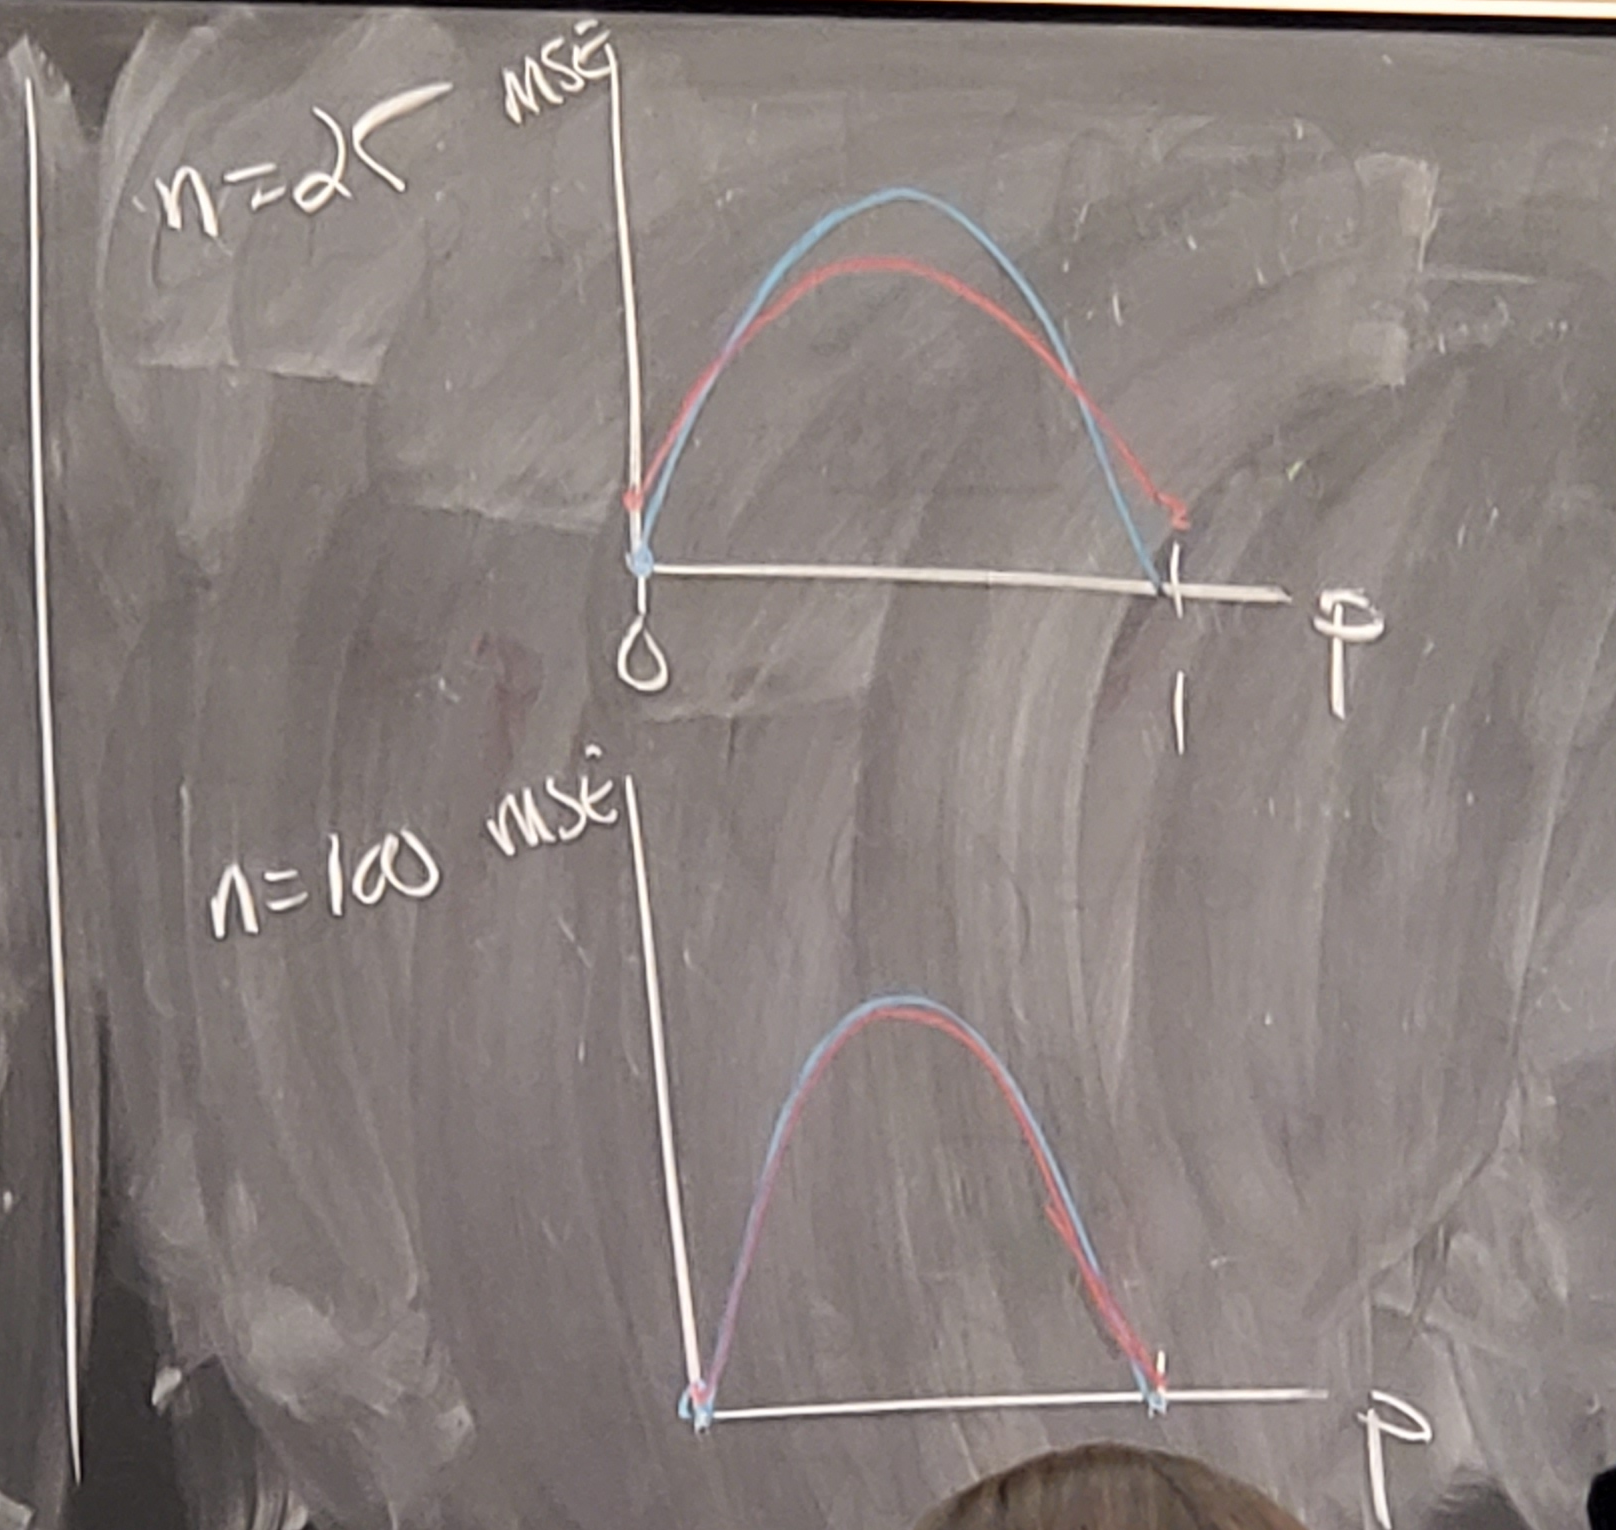 n=25 MSE
0 1 P
n=100 MSE
P